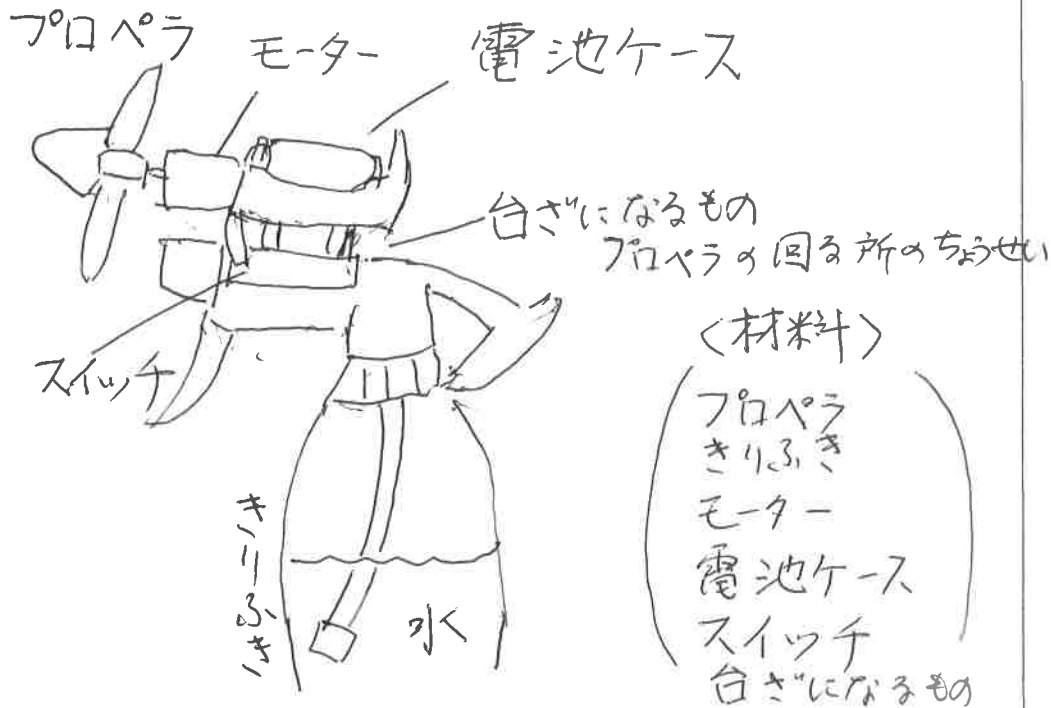 プロペラ
モーター
電池ケース
台ざになるもの
プロペラの回る所のちょうせい
スイッチ
きりふき
水
<材料>
プロペラ
きりふき
モーター
電池ケース
スイッチ
台ざになるもの